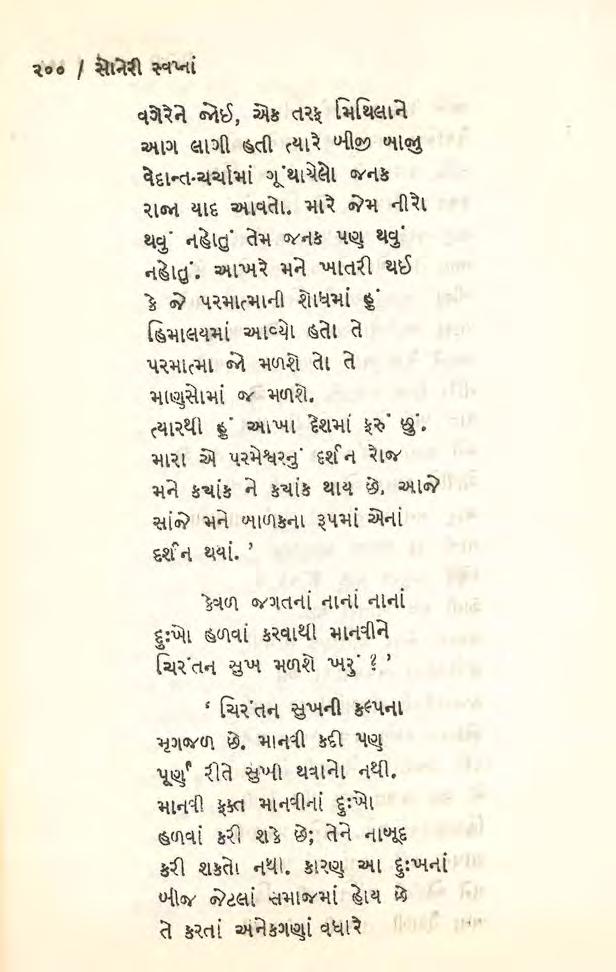 ૨૦૦ / સોનેરી સ્વપ્નાં
વગેરેને જોઈ, એક તરફ મિથિલાને
આગ લાગી હતી ત્યારે બીજી બાજુ
વેદાન્ત-ચર્ચામાં ગૂંથાયેલો જનક
રાજા યાદ આવતો. મારે જેમ નીરો
થવું નહોતું તેમ જનક પણ થવું
નહોતું. આખરે મને ખાતરી થઈ
કે જે પરમાત્માની શોધમાં હું
હિમાલયમાં આવ્યો હતો તે
પરમાત્મા જો મળશે તો તે
માણસોમાં જ મળશે.
ત્યારથી હું આખા દેશમાં ફરું છું.
મારા એ પરમેશ્વરનું દર્શન રોજ
મને કયાંક ને કયાંક થાય છે. આજે
સાંજે મને બાળકના રૂપમાં એનાં
દર્શન થયાં.’
કેવળ જગતનાં નાનાં નાનાં
દુઃખો હળવાં કરવાથી માનવીને
ચિરંતન સુખ મળશે ખરું ?’
‘ ચિરંતન સુખની કલ્પના
મૃગજળ છે. માનવી કદી પણ
પૂર્ણ રીતે સુખી થવાનો નથી.
માનવી ફક્ત માનવીનાં દુઃખો
હળવાં કરી શકે છે; તેને નાબૂદ
કરી શકતો નથી. કારણ આ દુઃખનાં
બીજ જેટલાં સમાજમાં હોય છે
તે કરતાં અનેકગણાં વધારે